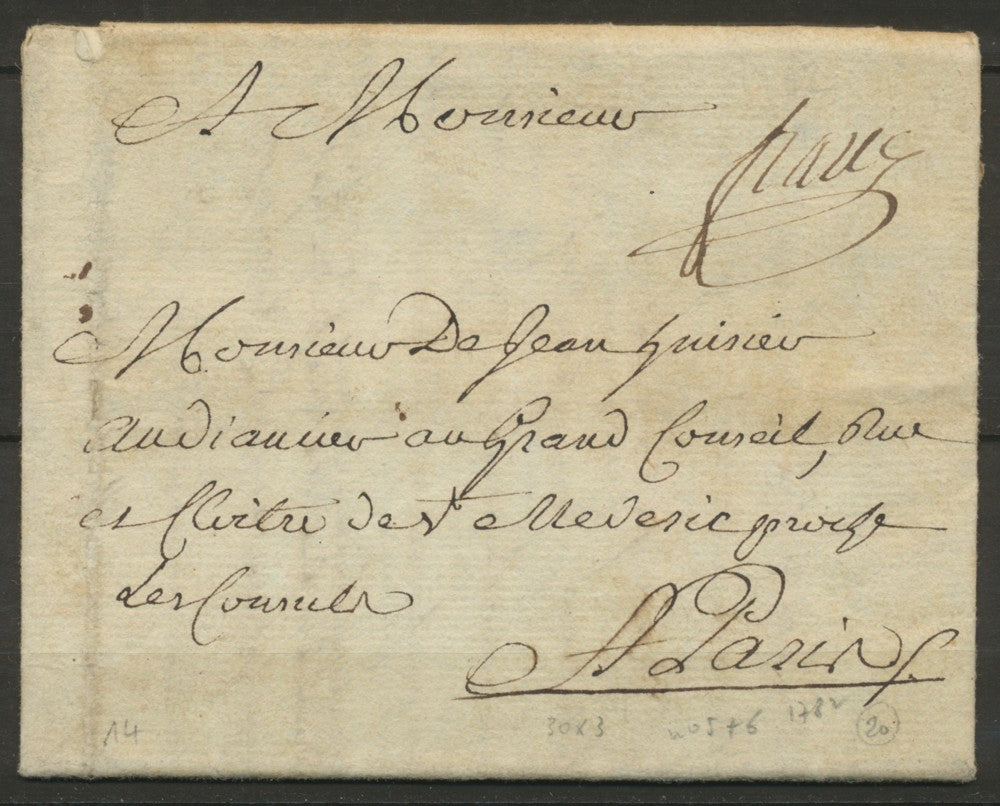 A Monsieur
franc
Monsieur De Jean huissier
audiancier au Grand Conseil, Rue
et Cloitre de St Mederic proche
Les Consuls
A Paris
14 30x3 1782 20